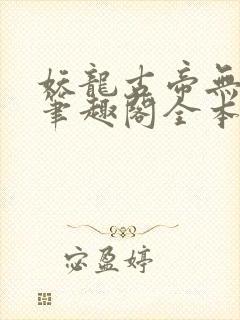 妖龍古帝無
筆趣閣全本
宓盈婷